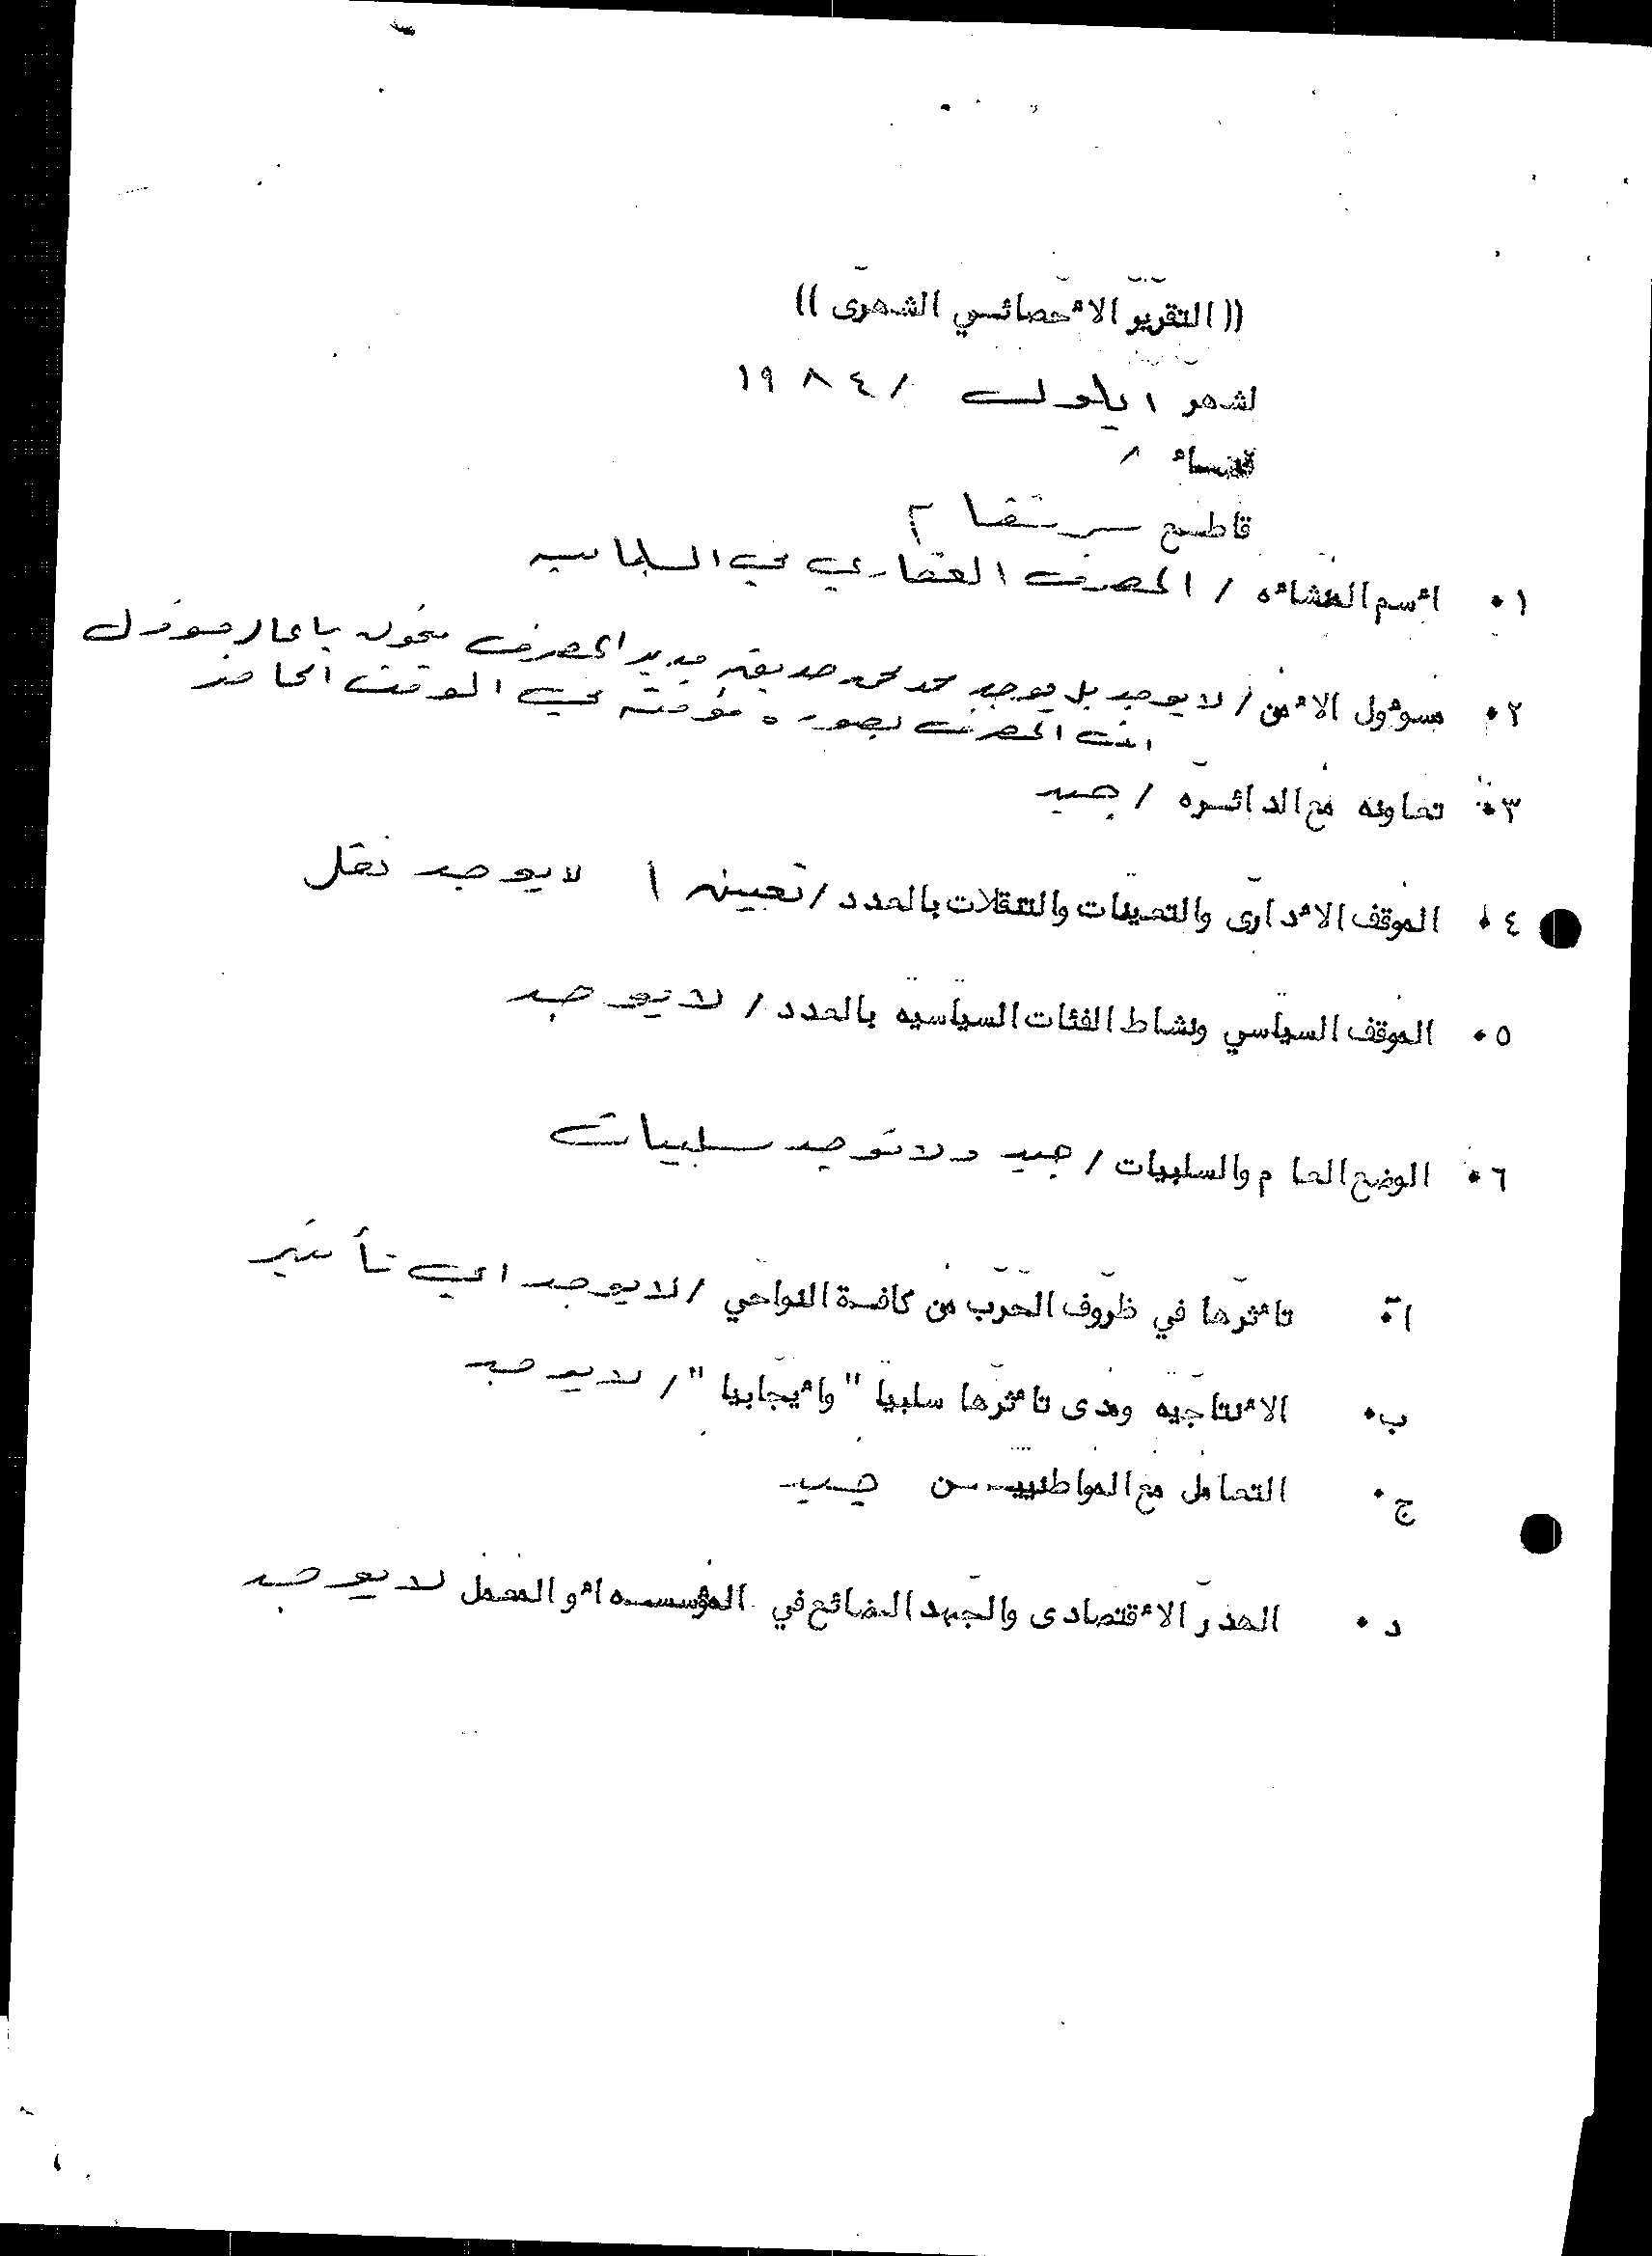 (( التقرير الاٴحصائي الشهرى ))
لشهر ايلول / ١٩٨٤
قضاٴ /
قاطع سرشقا ٢
١٠ اٴسم المنشاٴه / المصرف العقاري في السليمانيه
٢٠ مسوٴول الاٴمن / لا يوجد بل يوجد محمد محمد صديق مدير المصرف مخول باعمال مسؤول
امن المصرف بصوره مؤقته في الوقت الحاضر
٣٠ تعاونه مع الدائره / جيد
٤٠ الموقف الاٴدارى والتعينات والتنقلات بالعدد / تعيين ١ لا يوجد نقل
٥٠ الموقف السياسي ونشاط الفئات السياسيه بالعدد / لا يوجد
٦٠ الوضع العا م والسلبيات / جيد ولا توجد سلبيات
ا٠ تاٴثرها في ظروف الحرب من كافة النواحي / لا يوجد اي تأثير
ب٠ الاٴنتاجيه ومدى تاٴثرها سلبيا " واٴيجابيا " / لا يوجد
ج٠ التعامل مع المواطنيـن جيد
د٠ الهدر الاٴقتصادى والجهد الضائع في المؤسسه اٴو المعمل لا يوجد